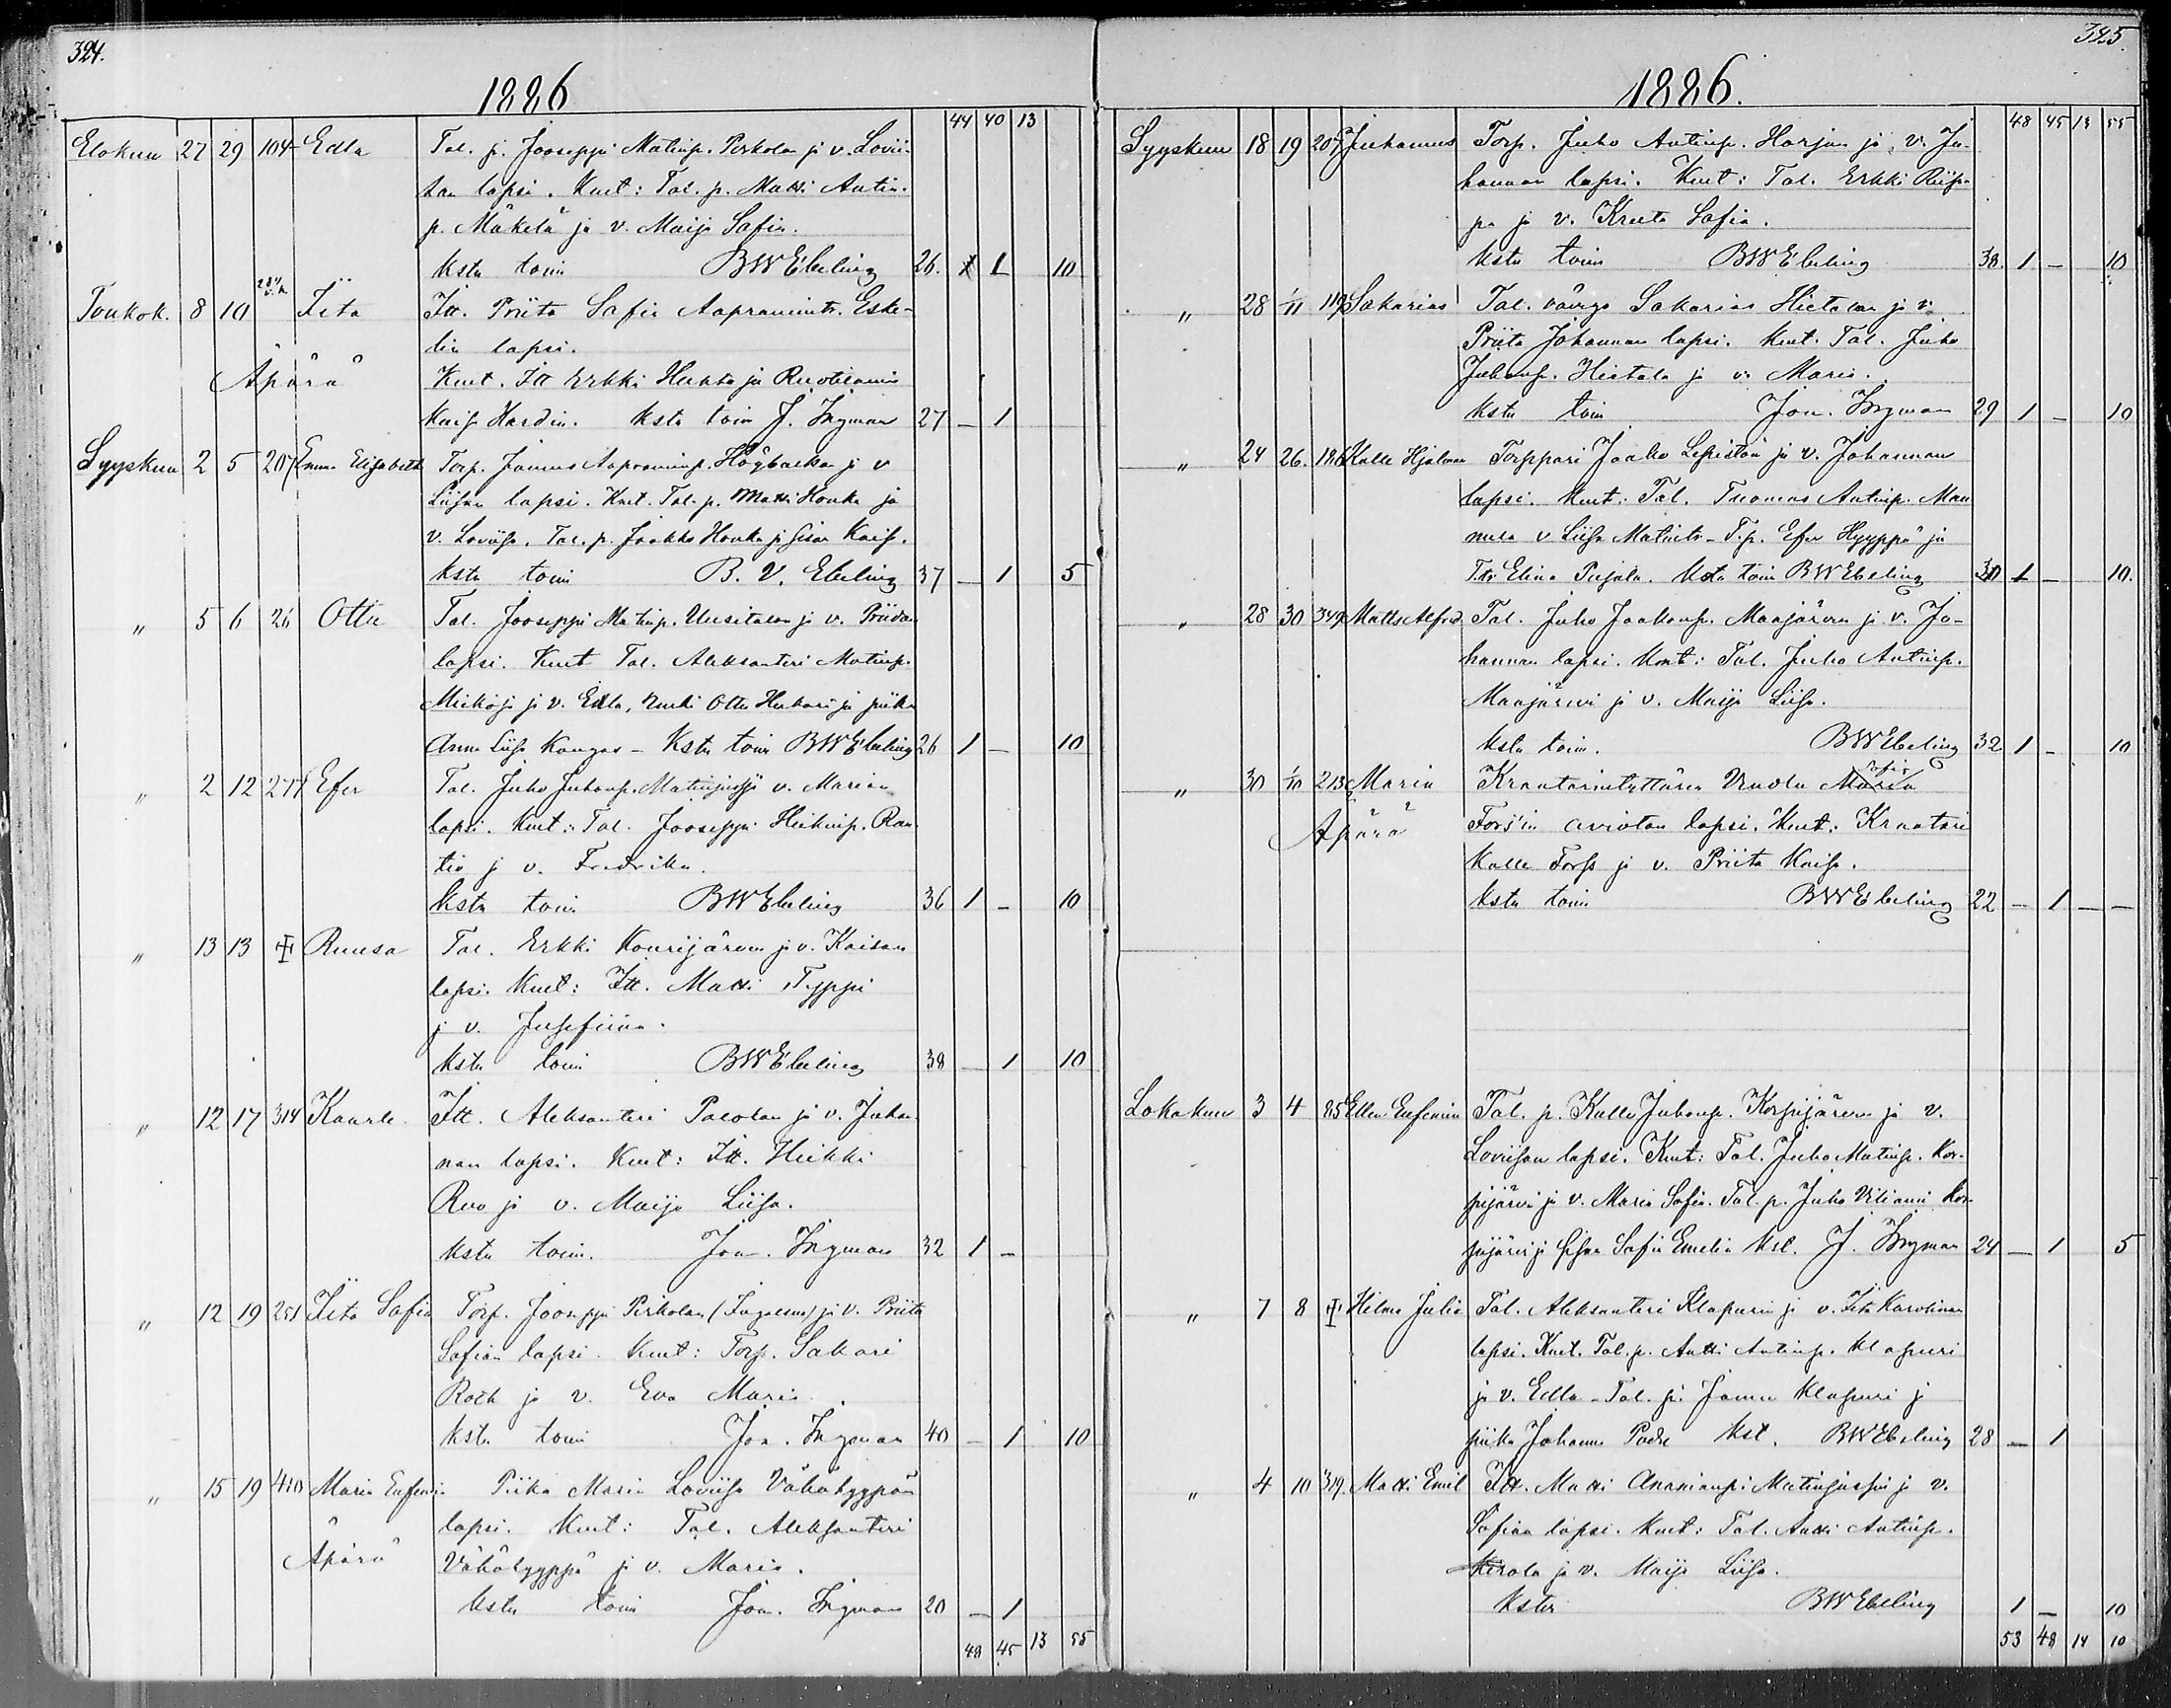 324.
1886
44 40 13
Elokuu 27 29 104 Edla Tal. p. Jooseppi Matinp. Perkola ja v. Lovii-
san lapsi. Kmt: Tal. p. Matti Antin-
p. Mäkelä ja v. Maija Sofia.
Kstu toim BWEbeling 26. 1 10
Toukok. 8 10 Iita Itt. Priita Sofia Aapramintr. Eske-
lin lapsi.
Äpärä Kmt. Itt Erkki Huhta ja
Kaisa Hardin. Ksta toim J. Ingman 27 — 1
Syyskuu 2 5 207 Emma Elisabeth Torp. Jaanus Aapraminp. Högbacka ja v
Liisan lapsi. Kmt. Tal. p. Matti Honka ja
v. Loviisa. Tal. p. Jaakko Honka ja sisar Kaisa.
Ksta toim B. V. Ebeling 37 — 1 5
" 5 6 26 Otto Tal. Jooseppi Matinp. Uusitalon ja v. Priidan
lapsi. Kmt Tal. Aleksanteri Matinp.
ja v. Edla, renki Otto Huhtari ja piika
Anna Liisa Kangas — Kstu toim BWEbeling 26 1 — 10
" 2 12 277 Efer Tal. Juho Juhonp. Matinjussi ja v. Marian
lapsi. Kmt: Tal. Jooseppi Heikinp. Ran-
tio ja v. Fredrika.
Kstu toim BWEbeling 36 1 — 10
" 13 13 Ruusa Tal. Erkki Kourijärven ja v. Kaisan
lapsi. Kmt: Itt. Matti Typpi
ja v. Josefiina.
Kstu toim BWEbeling 38 — 1 10
" 12 17 314 Kaarle Itt. Aleksanteri Palolan ja v. Juhan-
nan lapsi. Kmt: Itt. Heikki
Ruo ja v. Maija Liisa.
Kstu toim. Jon. Ingman 32 1 —
" 12 19 251 Iita Sofia Torp. Jooseppi Perkolan () ja v. Priita
Sofian lapsi. Kmt: Torp. Sakari
Roth ja v. Eva Maria.
Kstu toim Jon. Ingman 40 — 1 10
" 15 19 410 Maria Eufemia Piika Maria Loviisa Vähähyypän
lapsi. Kmt: Tal. Aleksanteri
Äpärä Vähähyyppä ja v. Maria.
Kstu toim Jon. Ingman 20 — 1
48 45 13 55
325.
1886.
48 45 13 55
Syyskuu 18 19 207 Juhannes Torp. Juho Antinp. Harjun ja v. Jo-
hannan lapsi. Kmt: Tal. Erkki Riip-
pa ja v. Kreeta Sofia.
Kstu toim BWEbeling 38. 1 — 10
" 28 1/11 119 Sakarias Tal. vävyn Sakarias Hietalan ja v.
Priita Johannan lapsi. Kmt. Tal. Juho
Juhonp. Hietala ja v. Maria.
Kstu toim Jon. Ingman 29 1 — 10
" 24 26. 186 Kalle Hjalmar Torppari Jaako Lepistön ja v. Johannan
lapsi. Kmt: Tal. Tuomas Antinp. Man-
nula v Liisa Matintr — T.p. Efer Hyyppä ja
T.tr. Elina Pujala. Kstu toim BWEbeling 30 1 — 10.
" 28 30 349 Matts Alfred Tal. Juho Jaakonp. Maajärven ja v. Jo-
hannan lapsi. Kmt: Tal. Juho Antinp.
Maajärvi ja v. Maija Liisa.
Kstu toim. BWEbeling 32 1 — 10
" 30 1/10 213 Maria Kraatarintyttären Sofia Maria
Äpärä Fors'in avioton lapsi. Kmt: Kraatari
Kalle Forss ja v. Priita Kaisa.
Kstu toim BWEbeling 22 — 1 — —
Lokakuu 3 4 85 Ellen Eufemia Tal. p. Kalle Juhonp. Korpijärven ja v.
Loviisan lapsi. Kmt: Tal. Juho Matinp. Kor-
pijärvi ja v. Maria Sofia. Tal. p. Juho Viljami Kor-
pijärvi ja sisar Sofia Emelia Kst. J. Ingman 24 — 1 5
" 7 8 Hilma Julia Tal. Aleksanteri Klapurin ja v. Iita Karolinan
lapsi. Kmt. Tal. p. Antti Antinp. Klapuri
ja v. Edla — Tal. p. Janne Klapuri ja
piika Johanna Kst. BWEbeling 28 — 1
" 4 10 319. Matti Emil Itt. Matti Ananianp. Matinjussin ja v.
Sofian lapsi. Kmt: Tal. Antti Antinp.
Kerola ja v. Maija Liisa.
Kstu BWEbeling 1 — 10
53 48 14 10